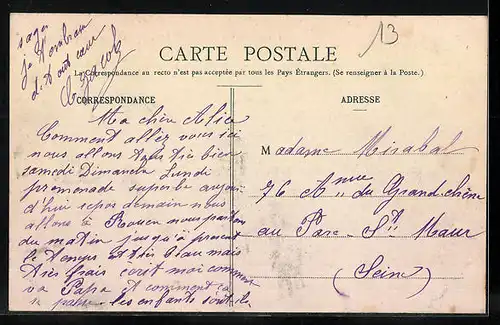 sages
je t'embrasse
de tout cœur
13
CARTE POSTALE
La Correspondance au recto n'est pas acceptée par tous les Pays Étrangers. (Se renseigner à la Poste.)
CORRESPONDANCE
ADRESSE
Ma chère Alice
Comment allez vous ici
nous allons tous très bien
samedi Dimanche Lundi
promenade superbe aujour
d'hui repos demain nous
allons à Rouen nous partons
du matin jusqu'à présent
le temps est très beau mais
très frais écrit moi comment
va Papa et comment ça
se passe. les enfants sont ils
Madame Mirabal
76 Anue du Grand-chêne
au Parc-St Maur
(Seine)